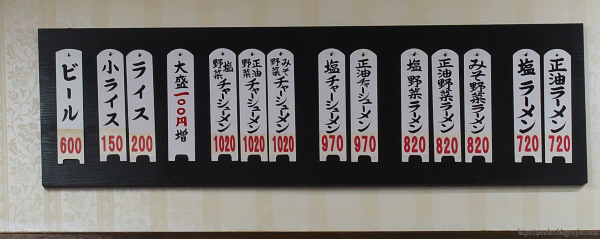 正油ラーメン 720
塩ラーメン 720
みそ野菜ラーメン 820
正油野菜ラーメン 820
塩野菜ラーメン 820
正油チャーシューメン 970
塩チャーシューメン 970
みそ野菜チャーシューメン 1020
正油野菜チャーシューメン 1020
塩野菜チャーシューメン 1020
大盛一〇〇円増
ライス 200
小ライス 150
ビール 600